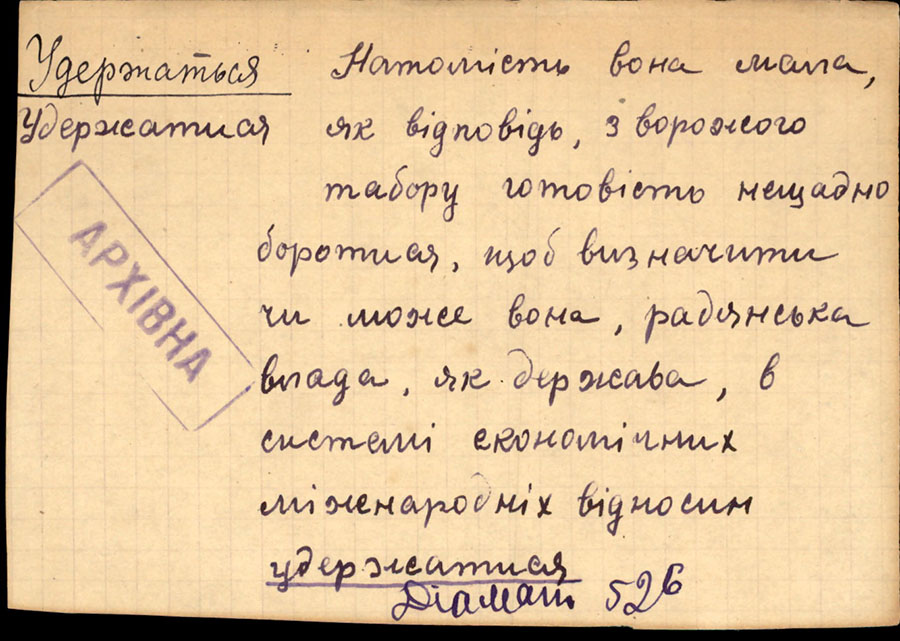 Удержаться
Удержатися
АРХІВНА
Натомість вона мала,
як відповідь, з ворожого
табору готовість нещадно
боротися, щоб визначити
чи може вона, радянська
влада, як держава, в
системі економічних
міжнародніх відносин
удержатися
Діамат 526